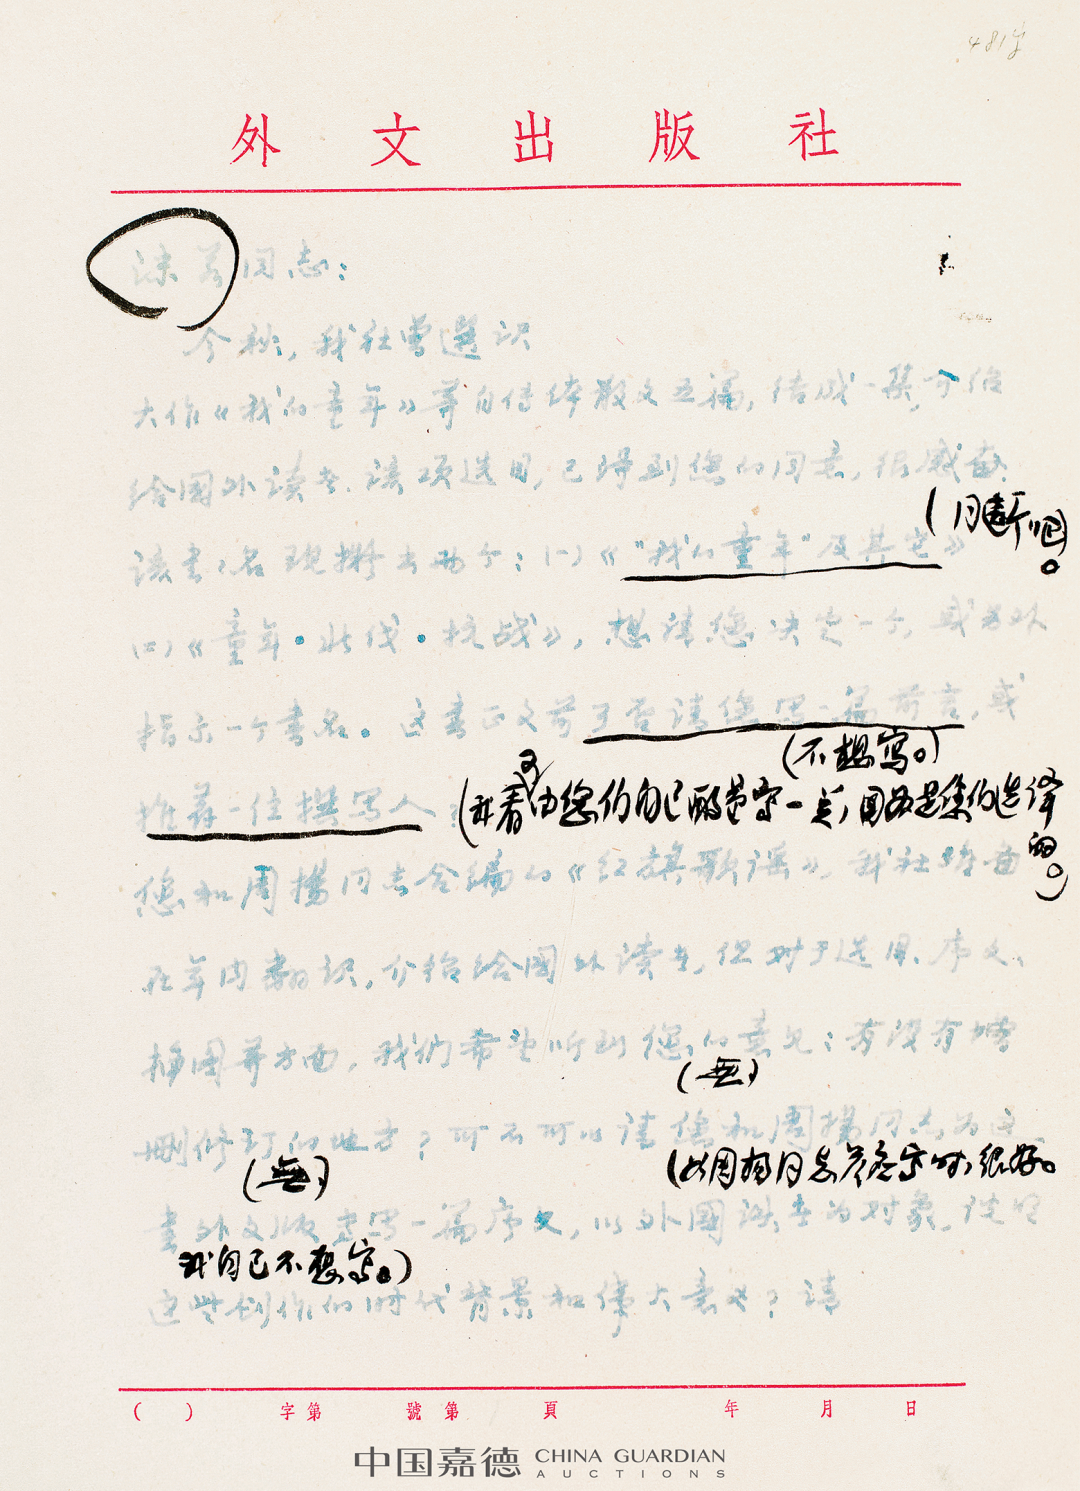 481号
外文出版社
沫若同志：
今秋，我社曾選译
大作《我的童年》等自传体散文五篇，结成一集，介绍
给國外读者。该项选目，已得到您的同意，很感谢。
(用這个吧。)
该书书名现拟出两个：(一)《“我的童年”及其它》
(二)《童年·北伐·抗战》，想请您决定一个，或另外
指示一个書名。这書正文前可否请您写一篇前言，或
(不想写。)
推荐一位撰写人？
(我看由您们自己酌量写一点，因为是您们选译
的。)
您和周揚同志合编的《红旗歌谣》，我社
在年内翻译，介绍给國外读者，但对于选目、序文、
插图等方面，我们希望听到您的意见：有没有增
(無)
删修订的地方？可不可以请您和周揚同志为这
(無)
(如周揚同志答应写时，很好。
書外文版写一篇序文，以外國读者为对象，说明
我自己不想写。)
这些创作的时代背景和偉大意义？请
( ) 字第 號第 頁 年 月 日
中国嘉德 CHINA GUARDIAN AUCTIONS